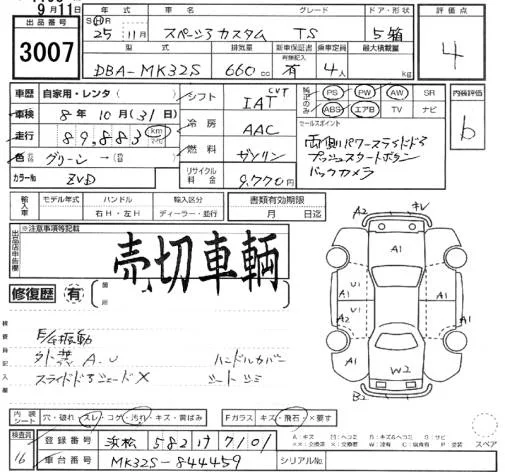 9月11日
出品番号
3007
年式 車名 グレード ドア・形状
S H R 25年 11月 スペーシアカスタム TS 5箱
型式 排気量 新車保証書 乗車定員 最大積載量
有無記入
DBA-MK32S 660cc 有 4人 kg
評価点
4
車歴 自家用・レンタ
車検 8年 10月(31日)
走行 89,883 km
色 グリーン →(色)
カラーNo ZVD
シフト IAT CVT
冷房 AAC
燃料 ガソリン
リサイクル料金 9,770円
純正のみ PS PW AW SR
ABS エアB TV ナビ
セールスポイント
両側パワースライドドア
プッシュスタートボタン
バックカメラ
内装評価
b
輸入車 モデル年式 ハンドル 輸入区分
年 右H・左H ディーラー・並行
書類有効期限
月 日迄
出品店申告欄
※注意事項等記載
売切車輌
修復歴 有 箇所
検査員記入欄
E/G振動
外装 A.U
スライドドアシェードX
ハンドルカバー
シートシミ
A2 キレ
A1
U1 U1
A1 A1
A2 A1
W2
B2
内装シート 穴・破れ・スレ・コゲ・汚れ・キズ・黄ばみ
Fガラス キズ・飛石・×要す
A:キズ U:ヘコミ B:キズ&ヘコミ S:サビ
××:交換済 X:要交換 W:波有 C:腐食有 P:塗装
スペア
検査員
16
登録番号 浜松 582 け 7101
車台番号 MK32S-844459
シリアルNo